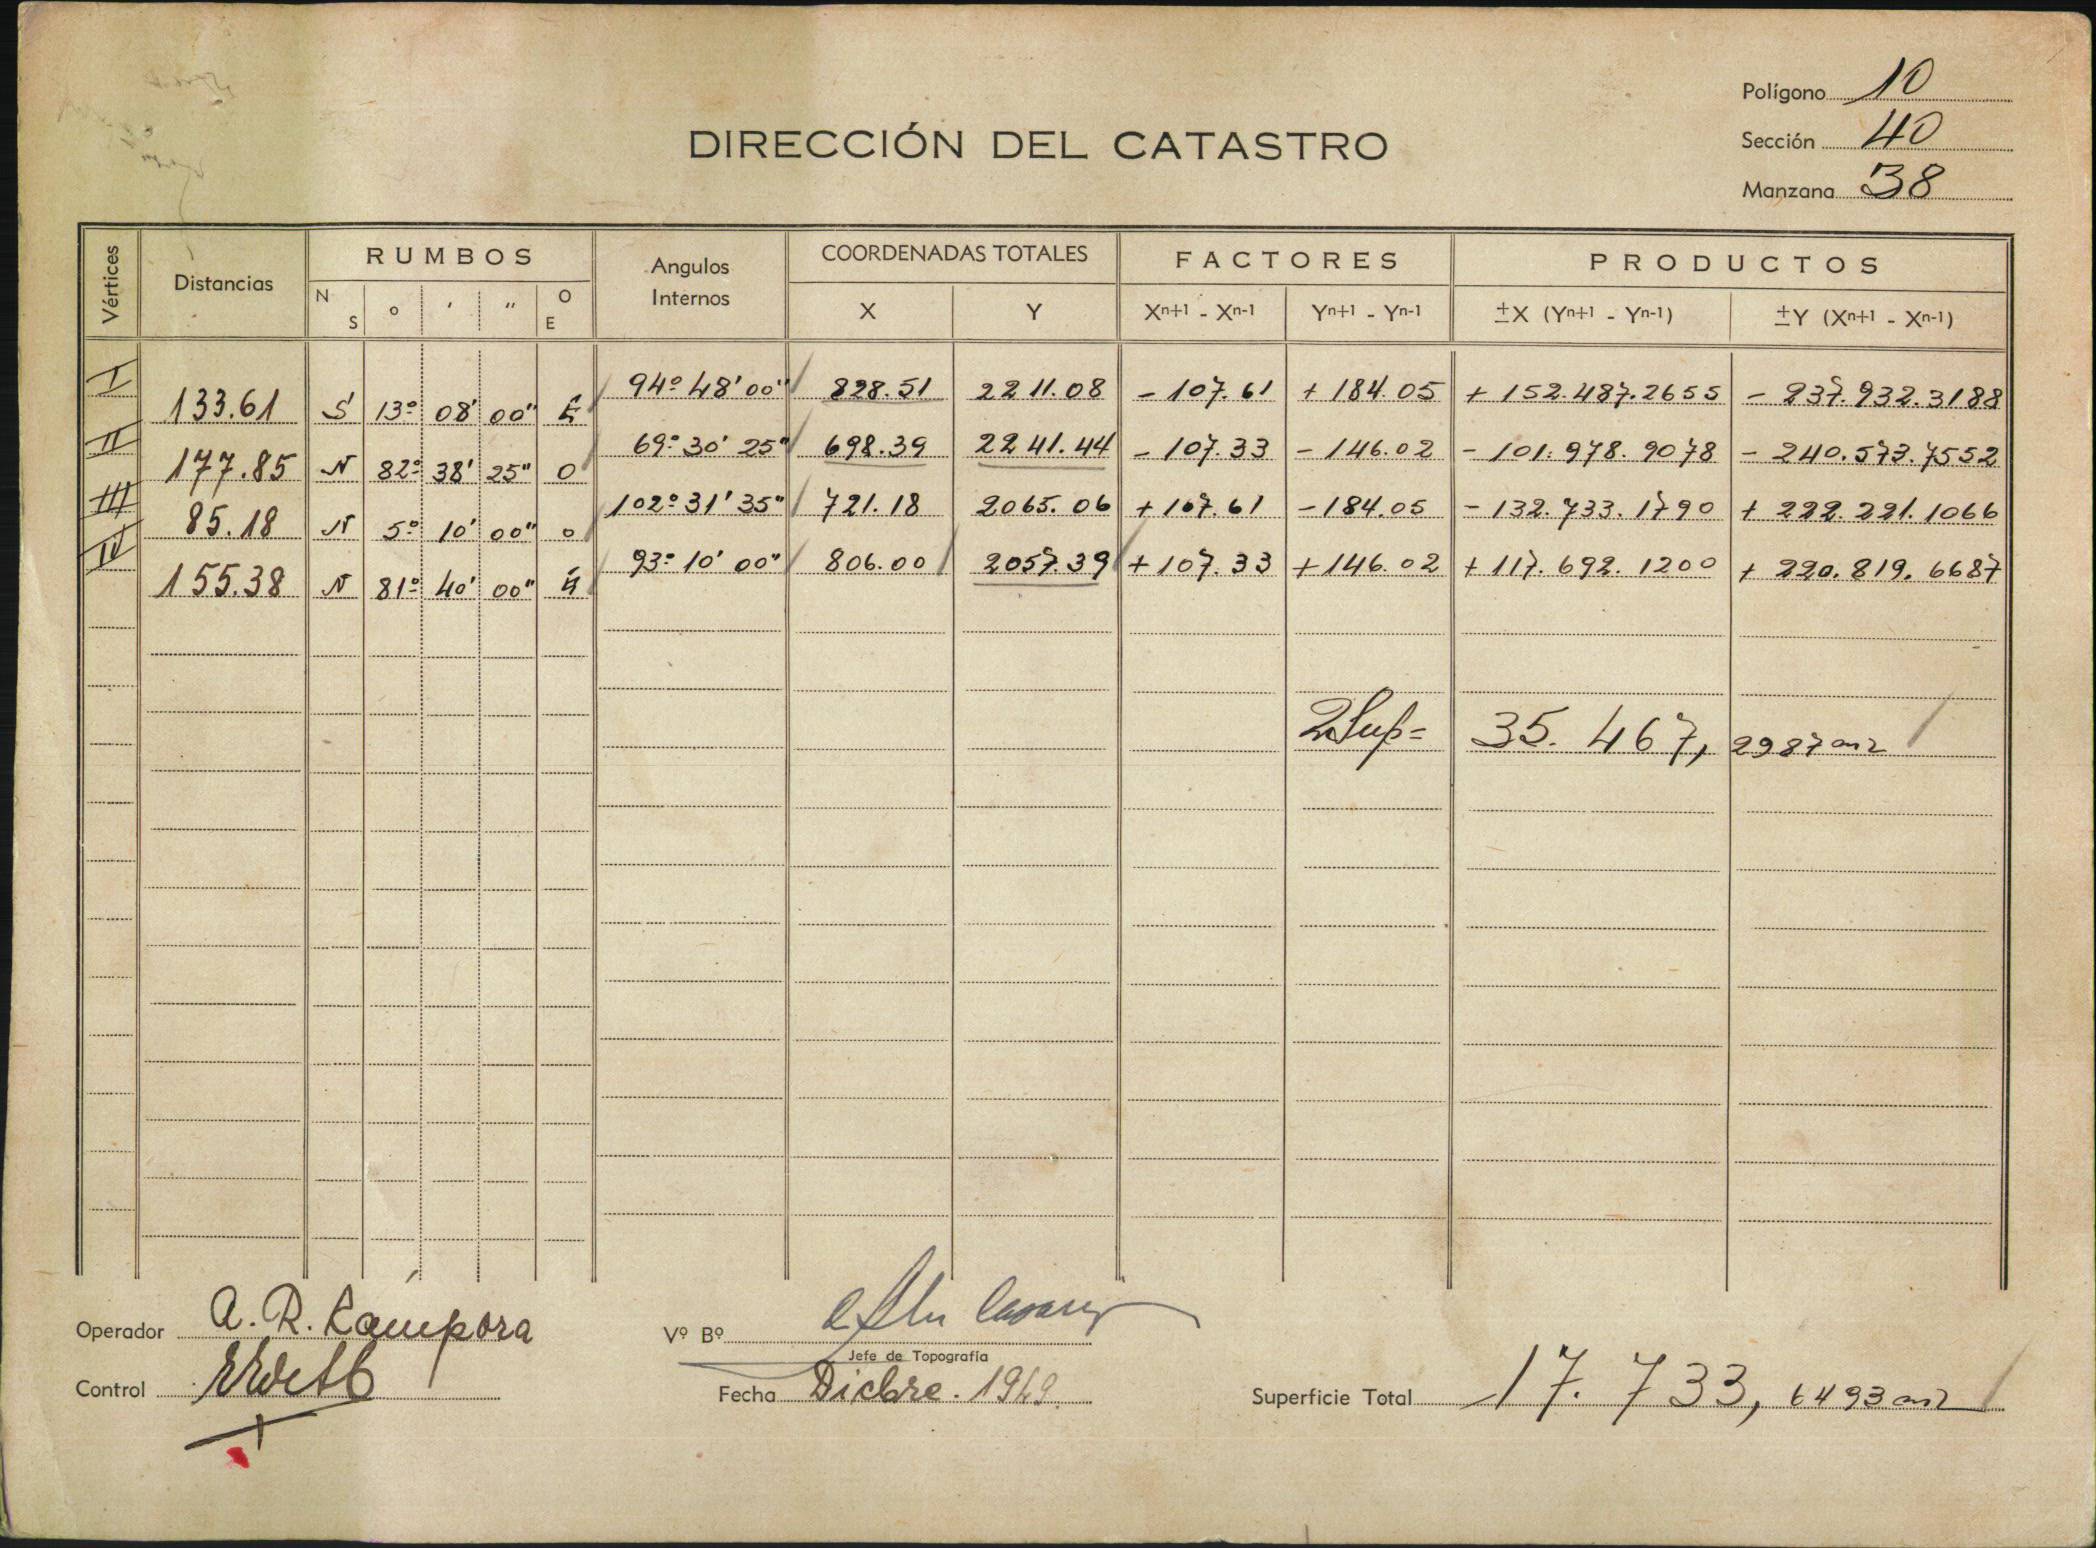 Polígono 10
Sección 40
Manzana 38
DIRECCIÓN DEL CATASTRO
Vértices Distancias RUMBOS Angulos Internos COORDENADAS TOTALES FACTORES PRODUCTOS
N S ° ' " O E X Y Xn+1 - Xn-1 Yn+1 - Yn-1 ±X (Yn+1 - Yn-1) ±Y (Xn+1 - Xn-1)
I 94º 48' 00" 828.51 2211.08 - 107.61 + 184.05 + 152.487.2655 - 237.932.3188
133.61 S 13º 08' 00" E
II 69º 30' 25" 698.39 2241.44 - 107.33 - 146.02 - 101.978.9078 - 240.573.7552
177.85 N 82º 38' 25" O
III 102º 31' 35" 721.18 2065.06 + 107.61 - 184.05 - 132.733.1790 + 222.221.1066
85.18 N 5º 10' 00" O
IV 93º 10' 00" 806.00 2057.39 + 107.33 + 146.02 + 117.692.1200 + 220.819.6687
155.38 N 81º 40' 00" E
2Sup= 35.467, 2987 m2
Operador A. R. Kámpora
Vº Bº
Jefe de Topografía
Control
Fecha Dicbre. 1949.
Superficie Total 17.733, 6493 m2